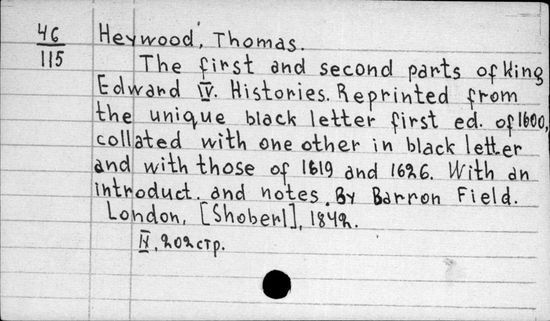 46
115
Heywood, Thomas.
The first and second parts of King
Edward IV. Histories. Reprinted from
the unique black letter first ed. of 1600,
collated with one other in black letter
and with those of 1619 and 1626. With an
introduct. and notes. By Barron Field.
London, [Shoberl], 1842.
IV, 202 стр.